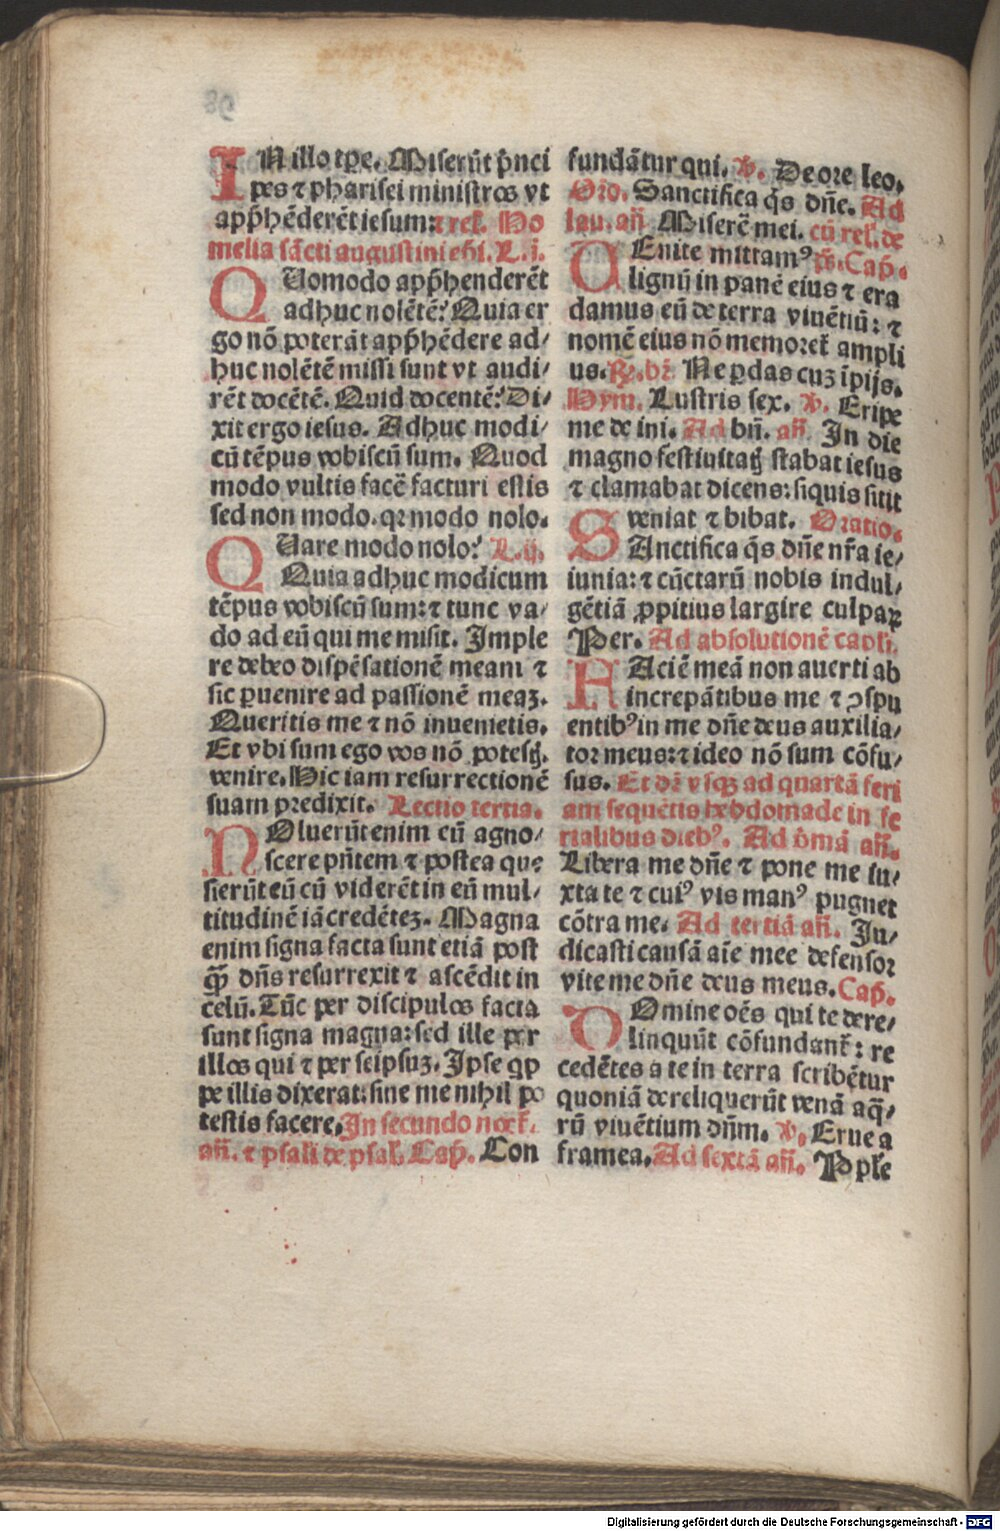 IN illo tꝑe. Miserūt p̄nci
pes ⁊ pharisei ministros vt
app̄hēderēt iesum: ⁊ rel̄. Ho
melia sācti augustini ep̄i. L. j.
QUomodo app̄henderēt
adhuc nolētē? Quia er
go nō poterāt app̄hēdere ad/
huc nolētē missi sunt vt audi/
rēt docētē. Quid docentē? Di/
xit ergo iesus. Adhuc modi/
cū tēpus vobiscū sum. Quod
modo vultis facē facturi estis
sed non modo. qꝛ modo nolo.
QUare modo nolo? L. ij.
Quia adhuc modicum
tēpus vobiscū sum: ⁊ tunc va/
do ad eū qui me misit. Imple
re debeo dispēsationē meam ⁊
sic ꝑuenire ad passionē meaꝫ.
Queritis me ⁊ nō inuenietis.
Et vbi sum ego vos nō potestꝭ
venire. Hic iam resurrectionē
suam predixit. Lectio tertia.
NOluerūt enim eū agno/
scere pn̄tem ⁊ postea que
sierūt eū cū viderēt in eū mul/
titudinē iā credēteꝫ. Magna
enim signa facta sunt etiā post
ꝙ̄ dn̄s resurrexit ⁊ ascēdit in
celū. Tūc per discipulos facta
sunt signa magna: sed ille per
illos qui ⁊ per seipsuꝫ. Ipse qp
pe illis dixerat: sine me nihil po
testis facere. In secundo noct̄.
añ. ⁊ psal̄i de psal̄. Cap̄. Con
fundātur qui. V. De ore leo.
Oro. Sanctifica q̄s dn̄e. Ad
lau. añ. Miserē mei. cū rel̄. de
VEnite mittamꝰ p̄s. Cap̄.
lignū in panē eius ⁊ era
damus eū de terra viuētiū: ⁊
nomē eius nō memoret̄ ampli
us. R. br̄. Ne ꝑdas cuꝫ īpijs.
Hym. Lustris sex. V. Eripe
me de ini. Ad bn̄. añ. In die
magno festiuitatꝭ stabat iesus
⁊ clamabat dicens: siquis sitit
veniat ⁊ bibat. Oratio.
SAnctifica q̄s dn̄e nr̄a ie/
iunia: ⁊ cūctarū nobis indul/
gētiā ꝓpitius largire culpaꝝ
Per. Ad absolutionē capl̄i.
FAciē meā non auerti ab
increpātibus me ⁊ ꝯspu
entibꝰ in me dn̄e deus auxilia/
tor meus: ⁊ ideo nō sum cōfu/
sus. Et dr̄ vsqꝫ ad quartā feri
am sequētis hebdomade in fe
rialibus diebꝰ. Ad p̄mā añ.
Libera me dn̄e ⁊ pone me iu/
xta te ⁊ cuiꝰ vis manꝰ pugnet
cōtra me. Ad tertiā añ. Iu/
dicasti causā aīe mee defensor
vite me dn̄e deus meus. Cap̄.
DOmine oēs qui te dere/
linquūt cōfundant̄: re
cedētes a te in terra scribētur
quoniā dereliquerūt venā aq̄/
rū viuētium dn̄m. V. Erue a
framea. Ad sextā añ. Pople
Digitalisierung gefördert durch die Deutsche Forschungsgemeinschaft - DFG